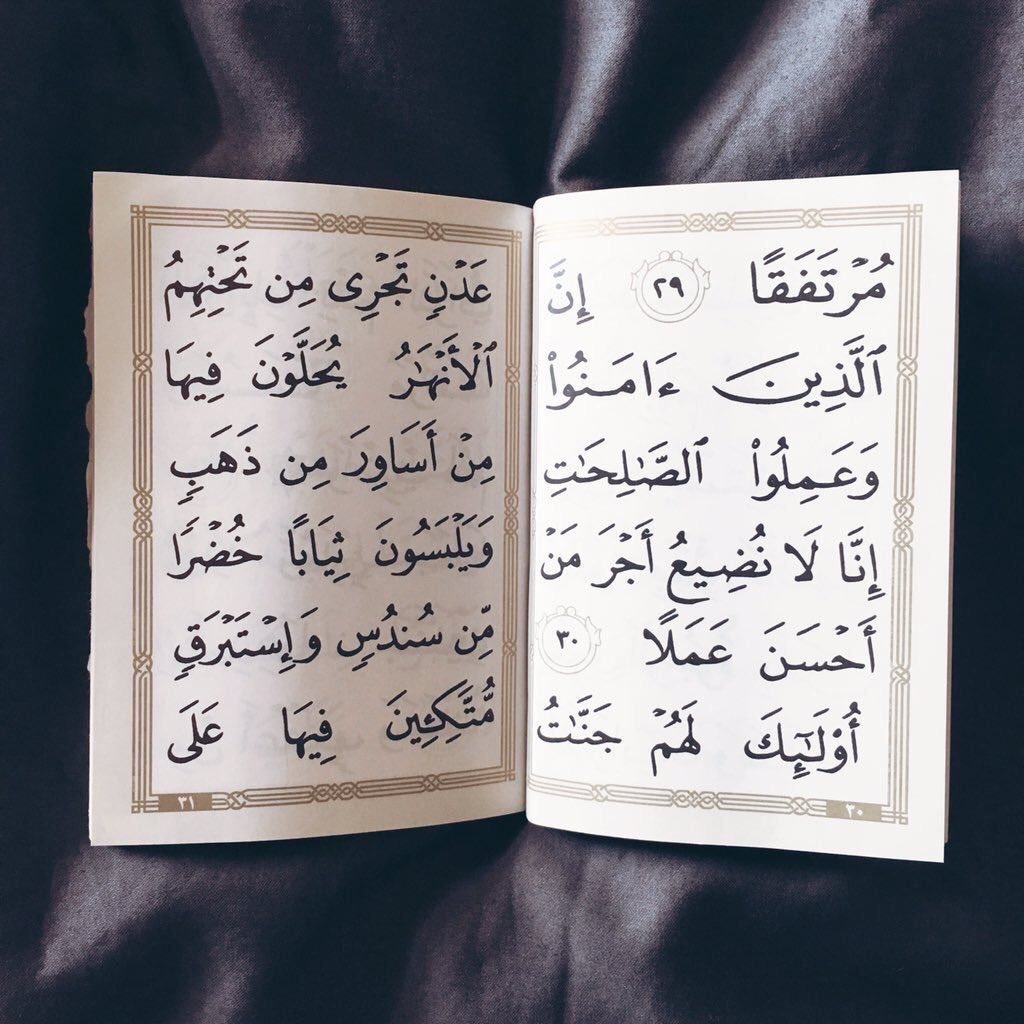 مُرْتَفَقًا ٢٩ إِنَّ
ٱلَّذِينَ ءَامَنُوا۟
وَعَمِلُوا۟ ٱلصَّـٰلِحَـٰتِ
إِنَّا لَا نُضِيعُ أَجْرَ مَنْ
أَحْسَنَ عَمَلًا ٣٠
أُو۟لَـٰٓئِكَ لَهُمْ جَنَّـٰتُ
٣٠
عَدْنٍ تَجْرِى مِن تَحْتِهِمُ
ٱلْأَنْهَـٰرُ يُحَلَّوْنَ فِيهَا
مِنْ أَسَاوِرَ مِن ذَهَبٍ
وَيَلْبَسُونَ ثِيَابًا خُضْرًا
مِّن سُندُسٍ وَإِسْتَبْرَقٍ
مُّتَّكِـِٔينَ فِيهَا عَلَى
٣١